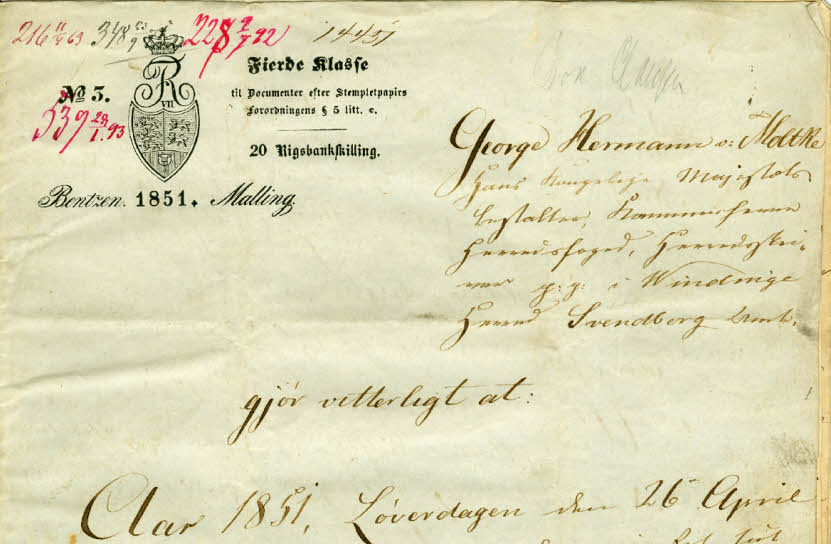 216 11/4 63 348 228 2/7 92 14451
Fierde Klasse
til Documenter efter Stempletpapirs
Forordningens § 5 litt. c.
20 Rigsbankskilling.
No 3.
VII
539 28/1. 93
Bentzen. 1851. Malling.
George Hermann v: Moltke
Hans Kongelige Majestæts
bestalter, Kammerherre
Herredsfoged, Herredsskri-
ver p: p: i Windinge
Herred Svendborg Amt.
gjör vitterligt at:
Aar 1851, Löverdagen den 26 April